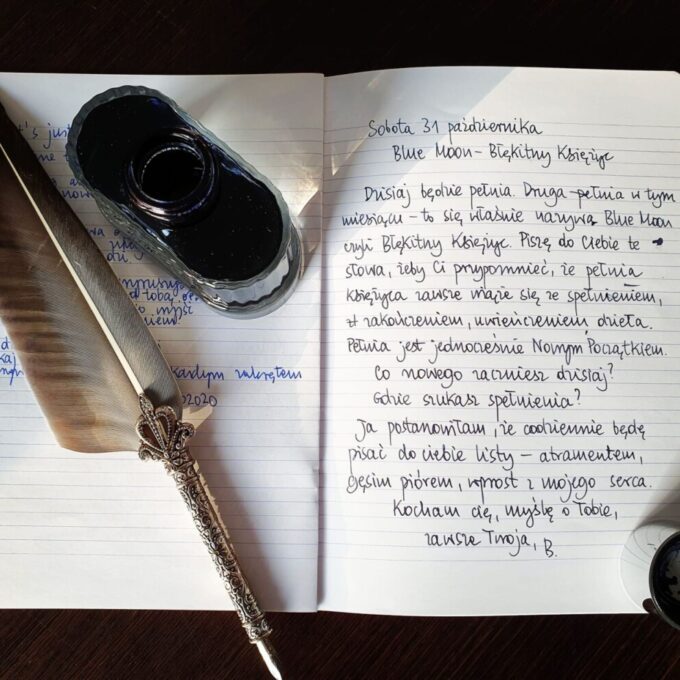 t's just
ne t
a
a
o
dził
tobą
myśl
niem.
d
kaj każdym zakrętem
2020
Sobota 31 października
Blue Moon - Błękitny Księżyc
Dzisiaj będzie pełnia. Druga pełnia w tym
miesiącu - to się właśnie nazywa Blue Moon
czyli Błękitny Księżyc. Piszę do Ciebie te
słowa, żeby Ci przypomnieć, że pełnia
Księżyca zawsze wiąże się ze spełnieniem,
z zakończeniem, uwieńczeniem, dzieła.
Pełnia jest jednocześnie Nowym Początkiem.
Co nowego zaczniesz dzisiaj?
Gdzie szukasz spełnienia?
Ja postanowiłam, że codziennie będę
pisać do ciebie listy - atramentem,
gęsim piórem, wprost z mojego serca.
Kocham cię, myślę o Tobie,
zawsze Twoja, B.